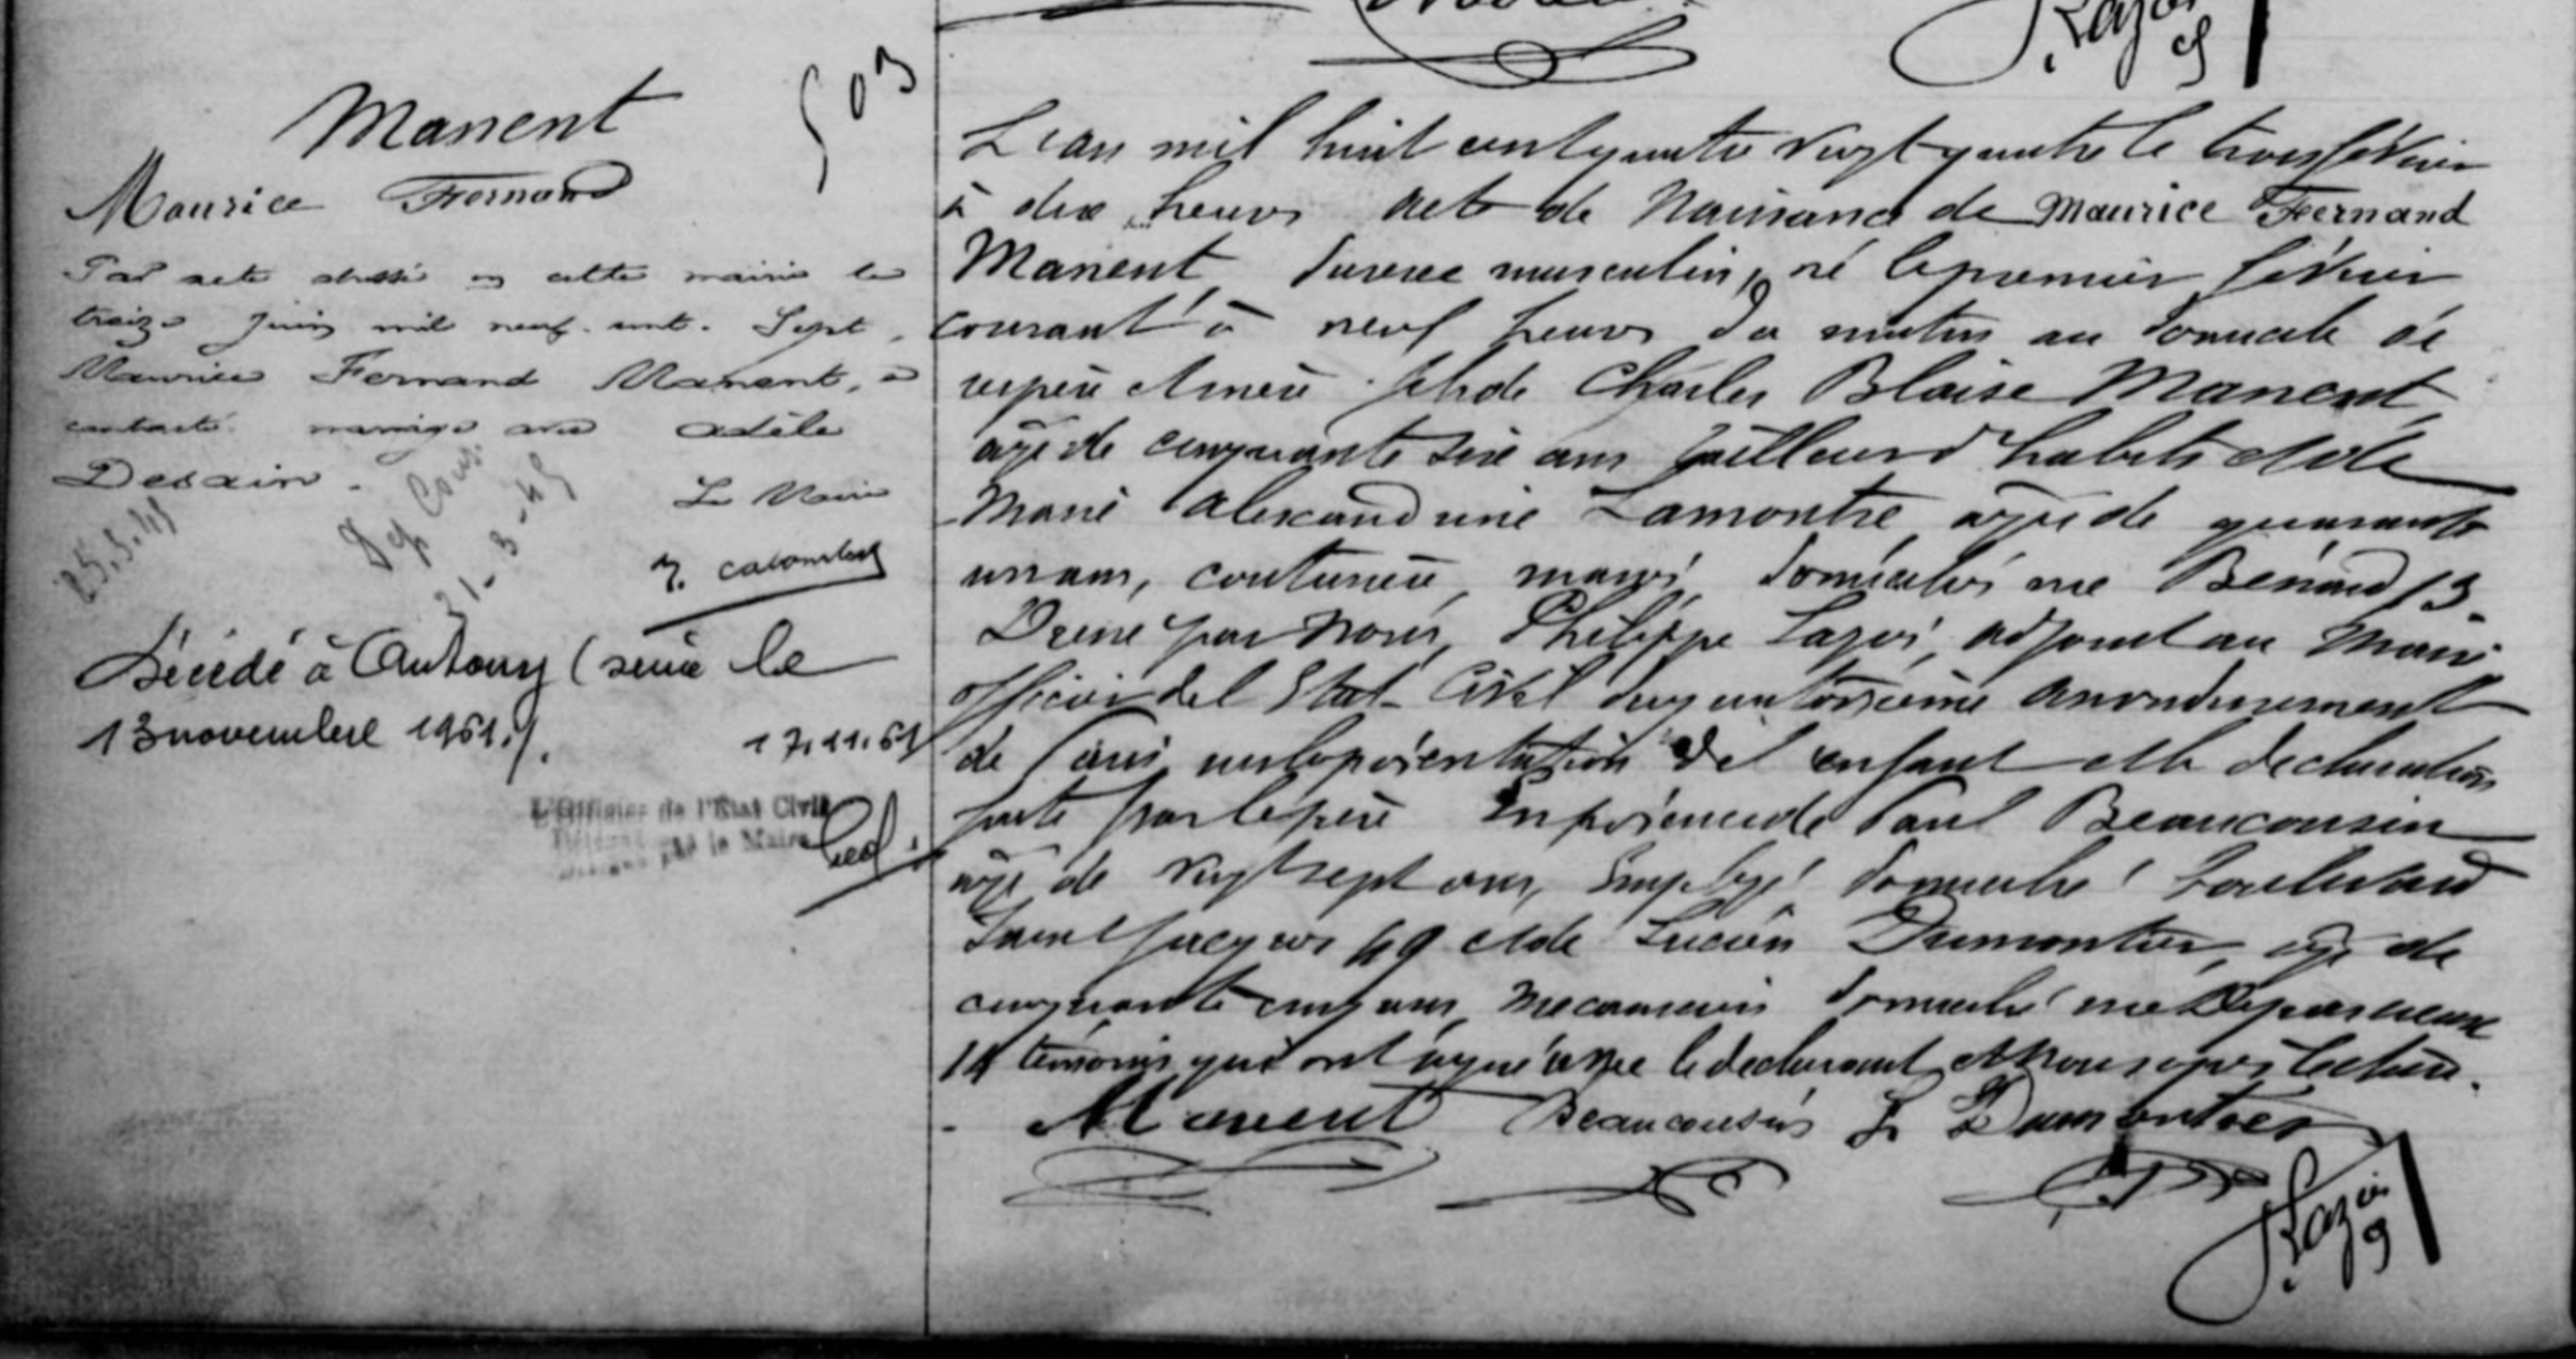 503
Manent
Maurice Fernand
Par acte dressé en cette mairie le
treize juin mil neuf cent Sept,
Maurice Fernand Manent, a
contracté mariage avec Adèle
Desain.
Le Maire
25.3.41
31-3-45
Décédé à Antony (seine le
13 novembre 1961./.
17.11.61
L'Officier de l'Etat Civil
par le Maire
L'an mil huit cent quatre vingt quatre le trois février
à dix heures acte de Naissance de Maurice Fernand
Manent du sexe masculin, né le premier février
courant à neuf heures du matin au domicile de
ses père et mère fils de Charles Blaise Manent,
âgé de cinquante six ans tailleur d'habits et de
Marie Alexandrine Lamontre, âgée de quarante
un ans, couturière, mariés, domiciliés rue Bénard 13.
Dressé par Nous, Philippe adjoint au Maire
officier de l'Etat-Civil du quatorzième arrondissement
de Paris sur la présentation de l'enfant et la déclaration
faite par le père En présence de Paul Beaucousin
âgé de vingt sept ans, Employé, domicilié boulevard
Saint Jacques 49 et de Lucien Dumontier, âgé de
cinquante cinq ans, mécanicien domicilié rue Deparcieux
14 témoins qui ont signé avec le déclarant et Nous après lecture.
Manent Beaucousin L Dumontier